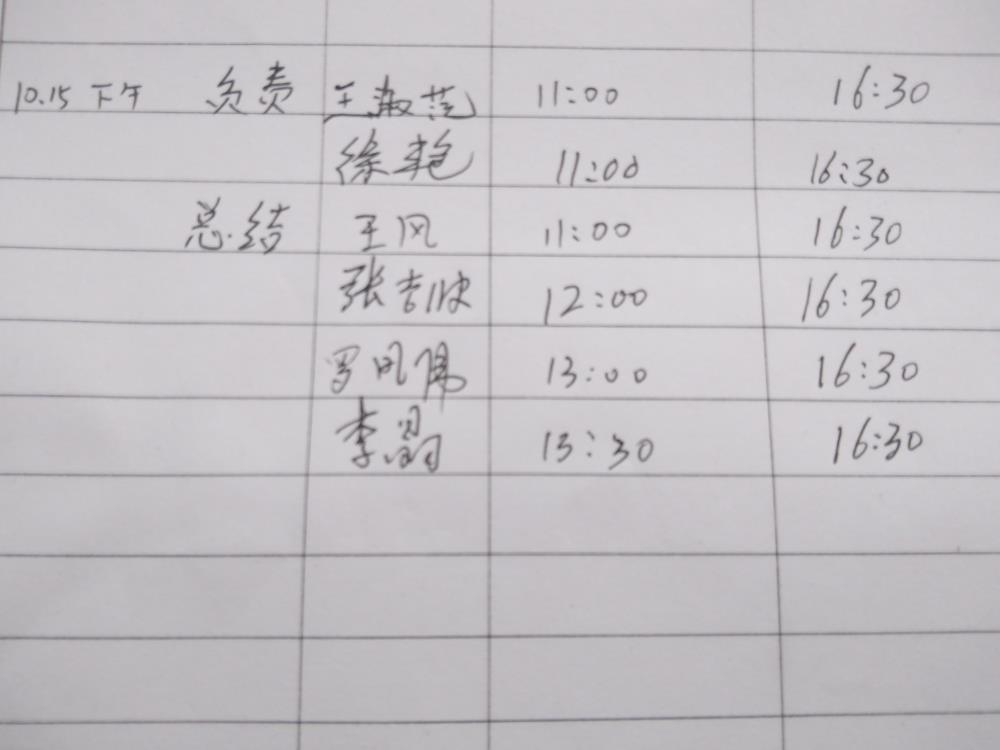 10.15 下午 负责 王淑范 11:00 16:30
徐艳 11:00 16:30
总结 王风 11:00 16:30
张吉 12:00 16:30
罗凤 13:00 16:30
李晶 13:30 16:30